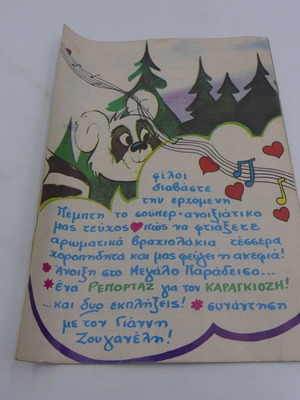 φίλοι
διαβάστε
την ερχόμενη
Πέμπτη το σούπερ-ανοιξιάτικο
μας τεύχος ♥ πώς να φτιάξετε
αρωματικά βραχιολάκια τέσσερα
χοροπηδητά και μας φεύγει η ακεφιά!
* Άνοιξη στο Μεγάλο Παράδεισο...
* ένα ΡΕΠΟΡΤΑΖ για τον ΚΑΡΑΓΚΙΟΖΗ!
...και δυο εκπλήξεις! * συνάντηση
με τον Γιάννη
Ζουγανέλη!